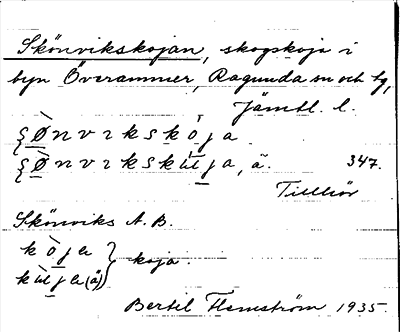 Skönvikskojan, skogskoja i
byn Överammer, Ragunda sn och tg,
Jämtl. l.
ʂø̀nvɪkskòja.
ʂø̀nvɪkskʉ̀ja, ä. 347.
Tillhör
Skönviks A. B.
kòja }
kʉ̀ja (ä) } koja.
Bertil Flemström 1935.